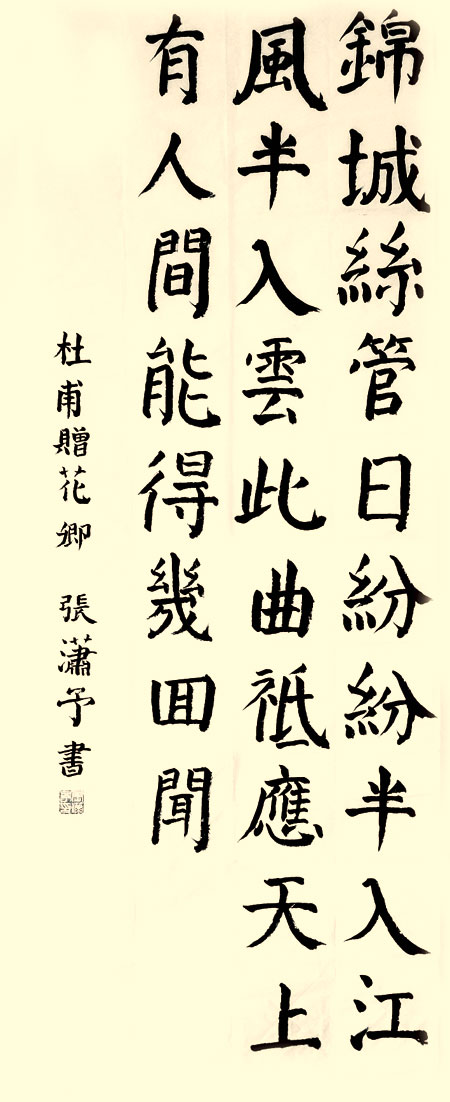 錦城絲管日紛紛半入江
風半入雲此曲祗應天上
有人間能得幾回聞
杜甫贈花卿 張瀟予書